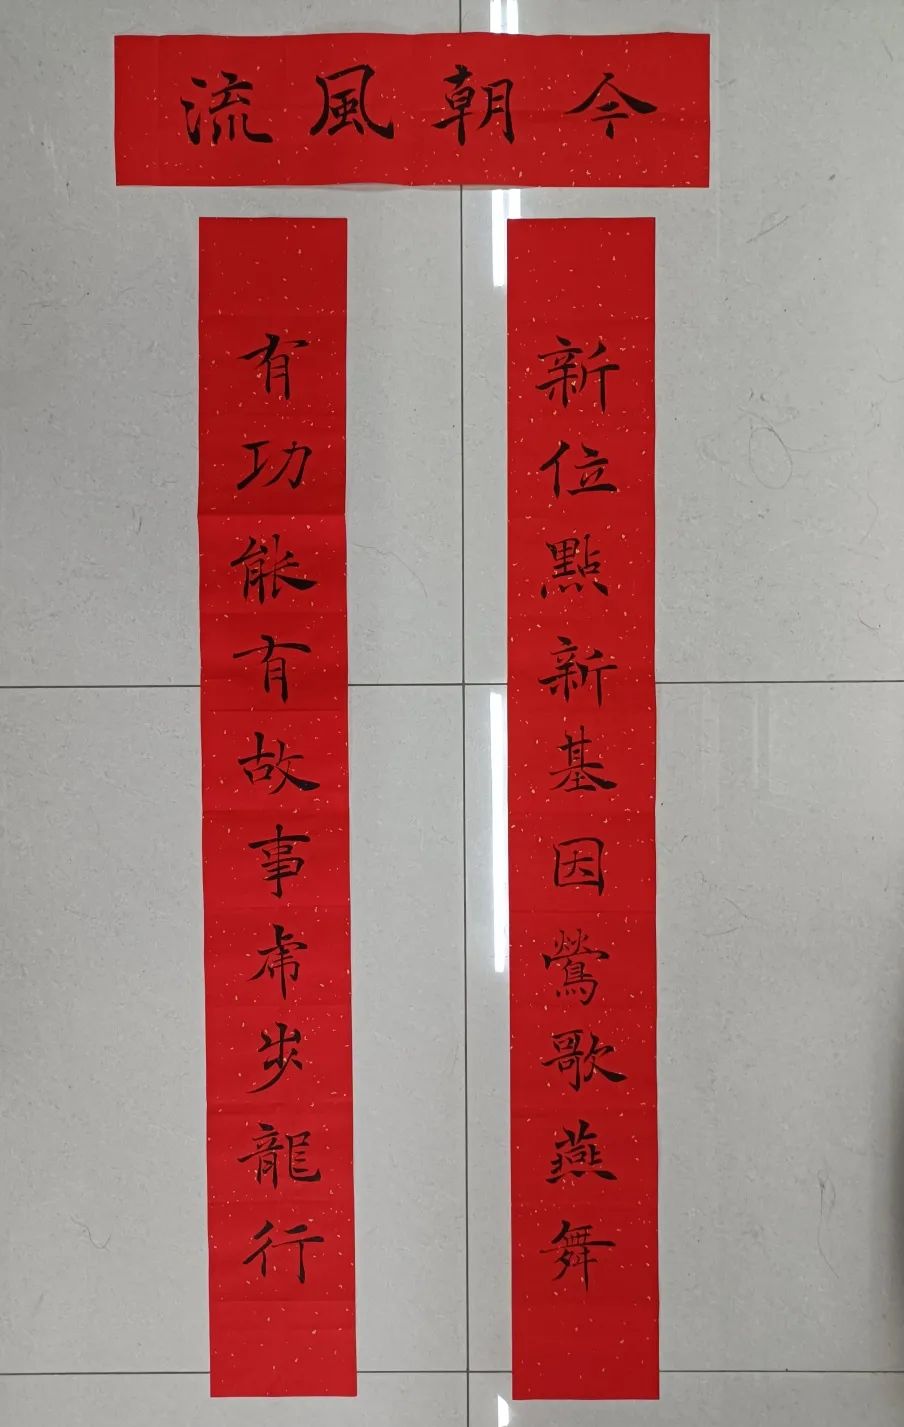 今朝風流
新位點新基因鶯歌燕舞
有功能有故事虎步龍行